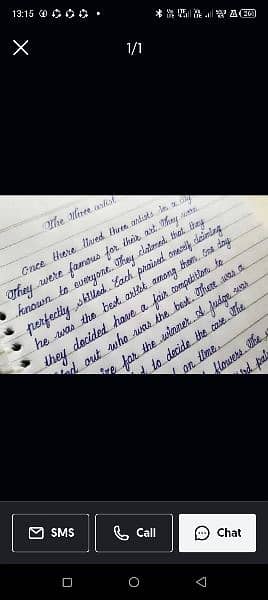 13:15
1/1
The Three artist
Once there lived three artists in a city
They were famous for their art. They were
known to everyone. They claimed that they
perfectly skilled. Each praised oneself claiming
he was the best artist among them. One day
they decided have a fair competition to
out who was the best. There was a
for the winner. A judge was
to decide the case. The
on time.
flowers. The
SMS
Call
Chat